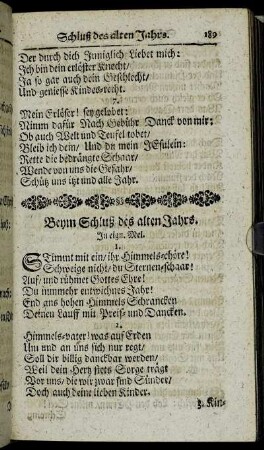 Schluß des alten Jahrs. 189
Der durch dich Inniglich Liebet mich:
Ich bin dein erlöster Knecht/
Ja so gar auch dein Geschlecht/
Und geniesse Kindesrecht.
7.
Mein Erlöser! sey gelobet!
Nimm dafür Nach Gebühr Danck von mir;
Ob auch Welt und Teufel tobet/
Bleib ich dein/ Und du mein JEsulein:
Rette die bedrängte Schaar/
Wende von uns die Gefahr/
Schütz uns itzt und alle Jahr.
Beym Schluß des alten Jahrs.
In eign. Mel.
1.
STimmt mit ein/ ihr Himmels-chöre!
Schweige nicht/ du Sternen-schaar!
Auf/ und rühmet Gottes Ehre!
Du nunmehr entwichnes Jahr!
End ans hohen Himmels Schrancken
Deinen Lauff mit Preiß und Dancken.
2.
Himmels-vater! was auf Erden
Um und an uns sich nur regt/
Soll dir billig danckbar werden/
Weil dein Hertz stets Sorge trägt
Vor uns/ die wir zwar sind Sünder/
Doch auch deine lieben Kinder.
3. Kin-